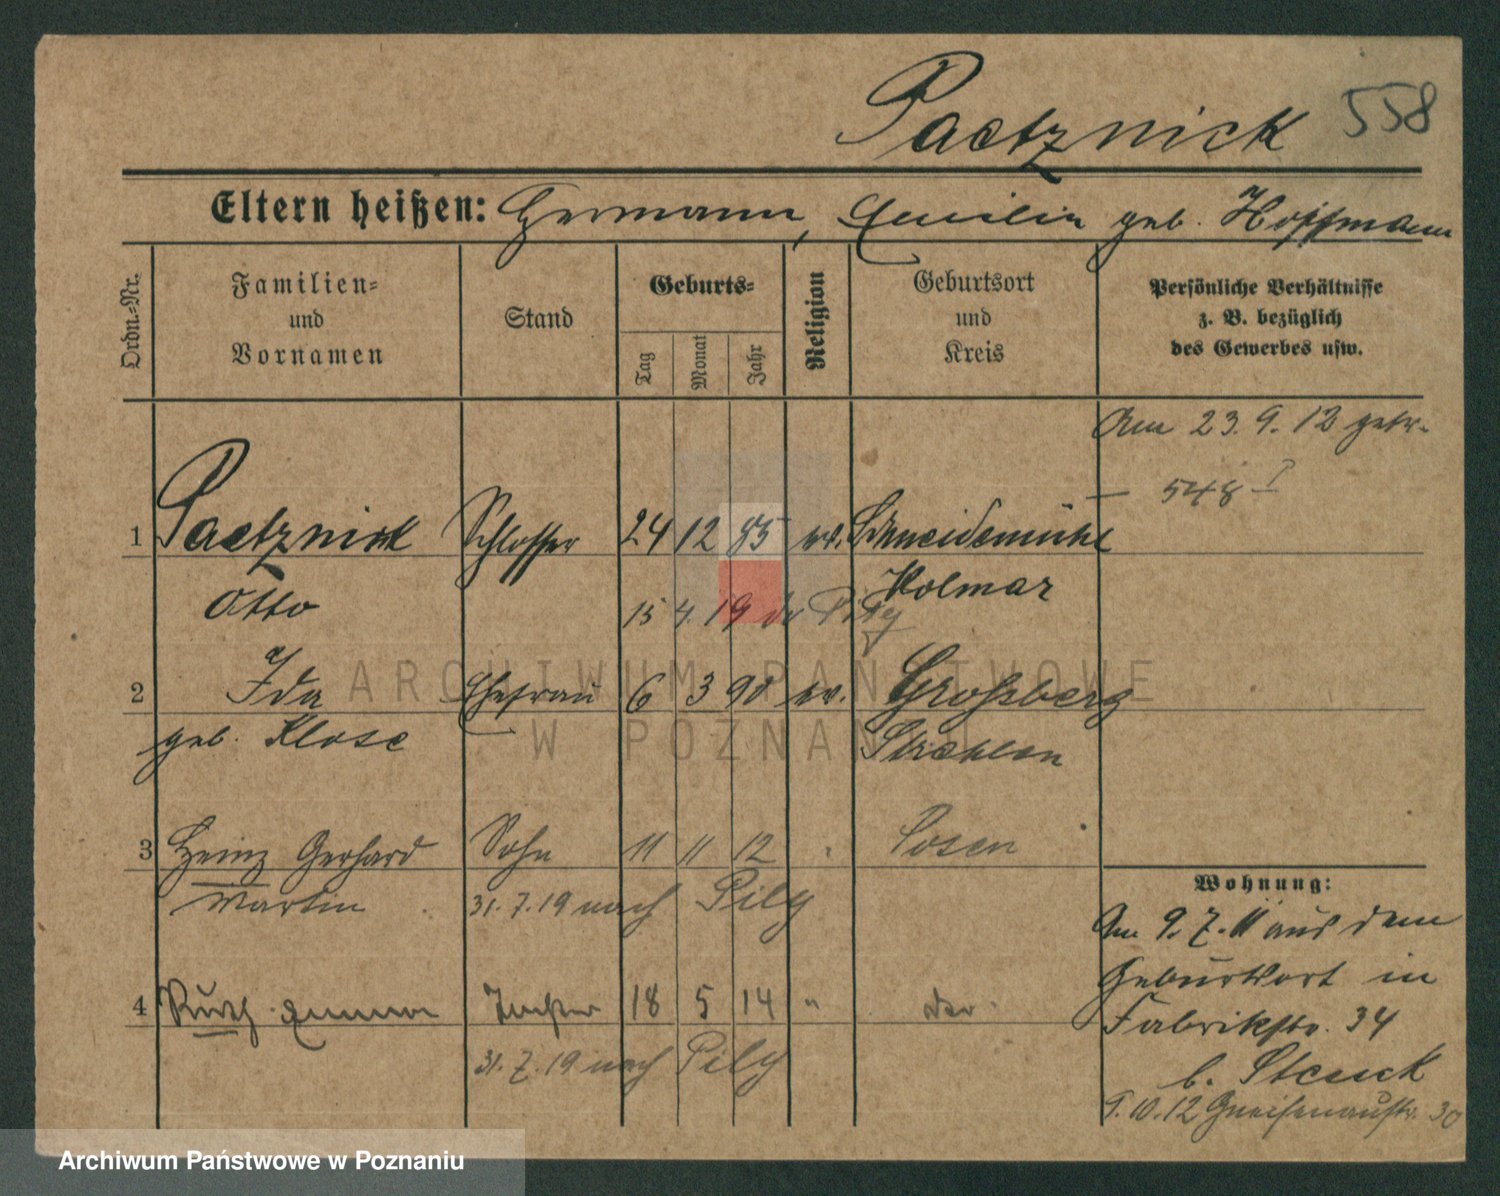 Paetznick 558
Eltern heißen: Hermann, Emilie geb. Hoffmann
Ordn.-Nr.
Familien- und Vornamen
Stand
Geburts-
Tag
Monat
Jahr
Religion
Geburtsort und Kreis
Persönliche Verhältnisse
z. B. bezüglich
des Gewerbes usw.
Am 23. 9. 12 getr.
548 I
1 Paetznick Schlosser 24 12 85 ev. Schneidemühl
Otto Kolmar
15 4. 19
2 Ida Ehefrau 6 3 90 ev. Großberg
geb. Klose Strehlen
3 Heinz Gerhard Sohn 11 11 12 Posen
Martin 31. 7. 19 nach Pily
4 Ruth Emma Tochter 18 5 14 "
31. 7. 19 nach Pily
Wohnung:
Am 9. 7. 11 aus dem
Geburtsort in
Fabrikstr. 34
b.
10. 12 Gneisenaustr. 30
ARCHIWUM PAŃSTWOWE
W POZNANIU
Archiwum Państwowe w Poznaniu